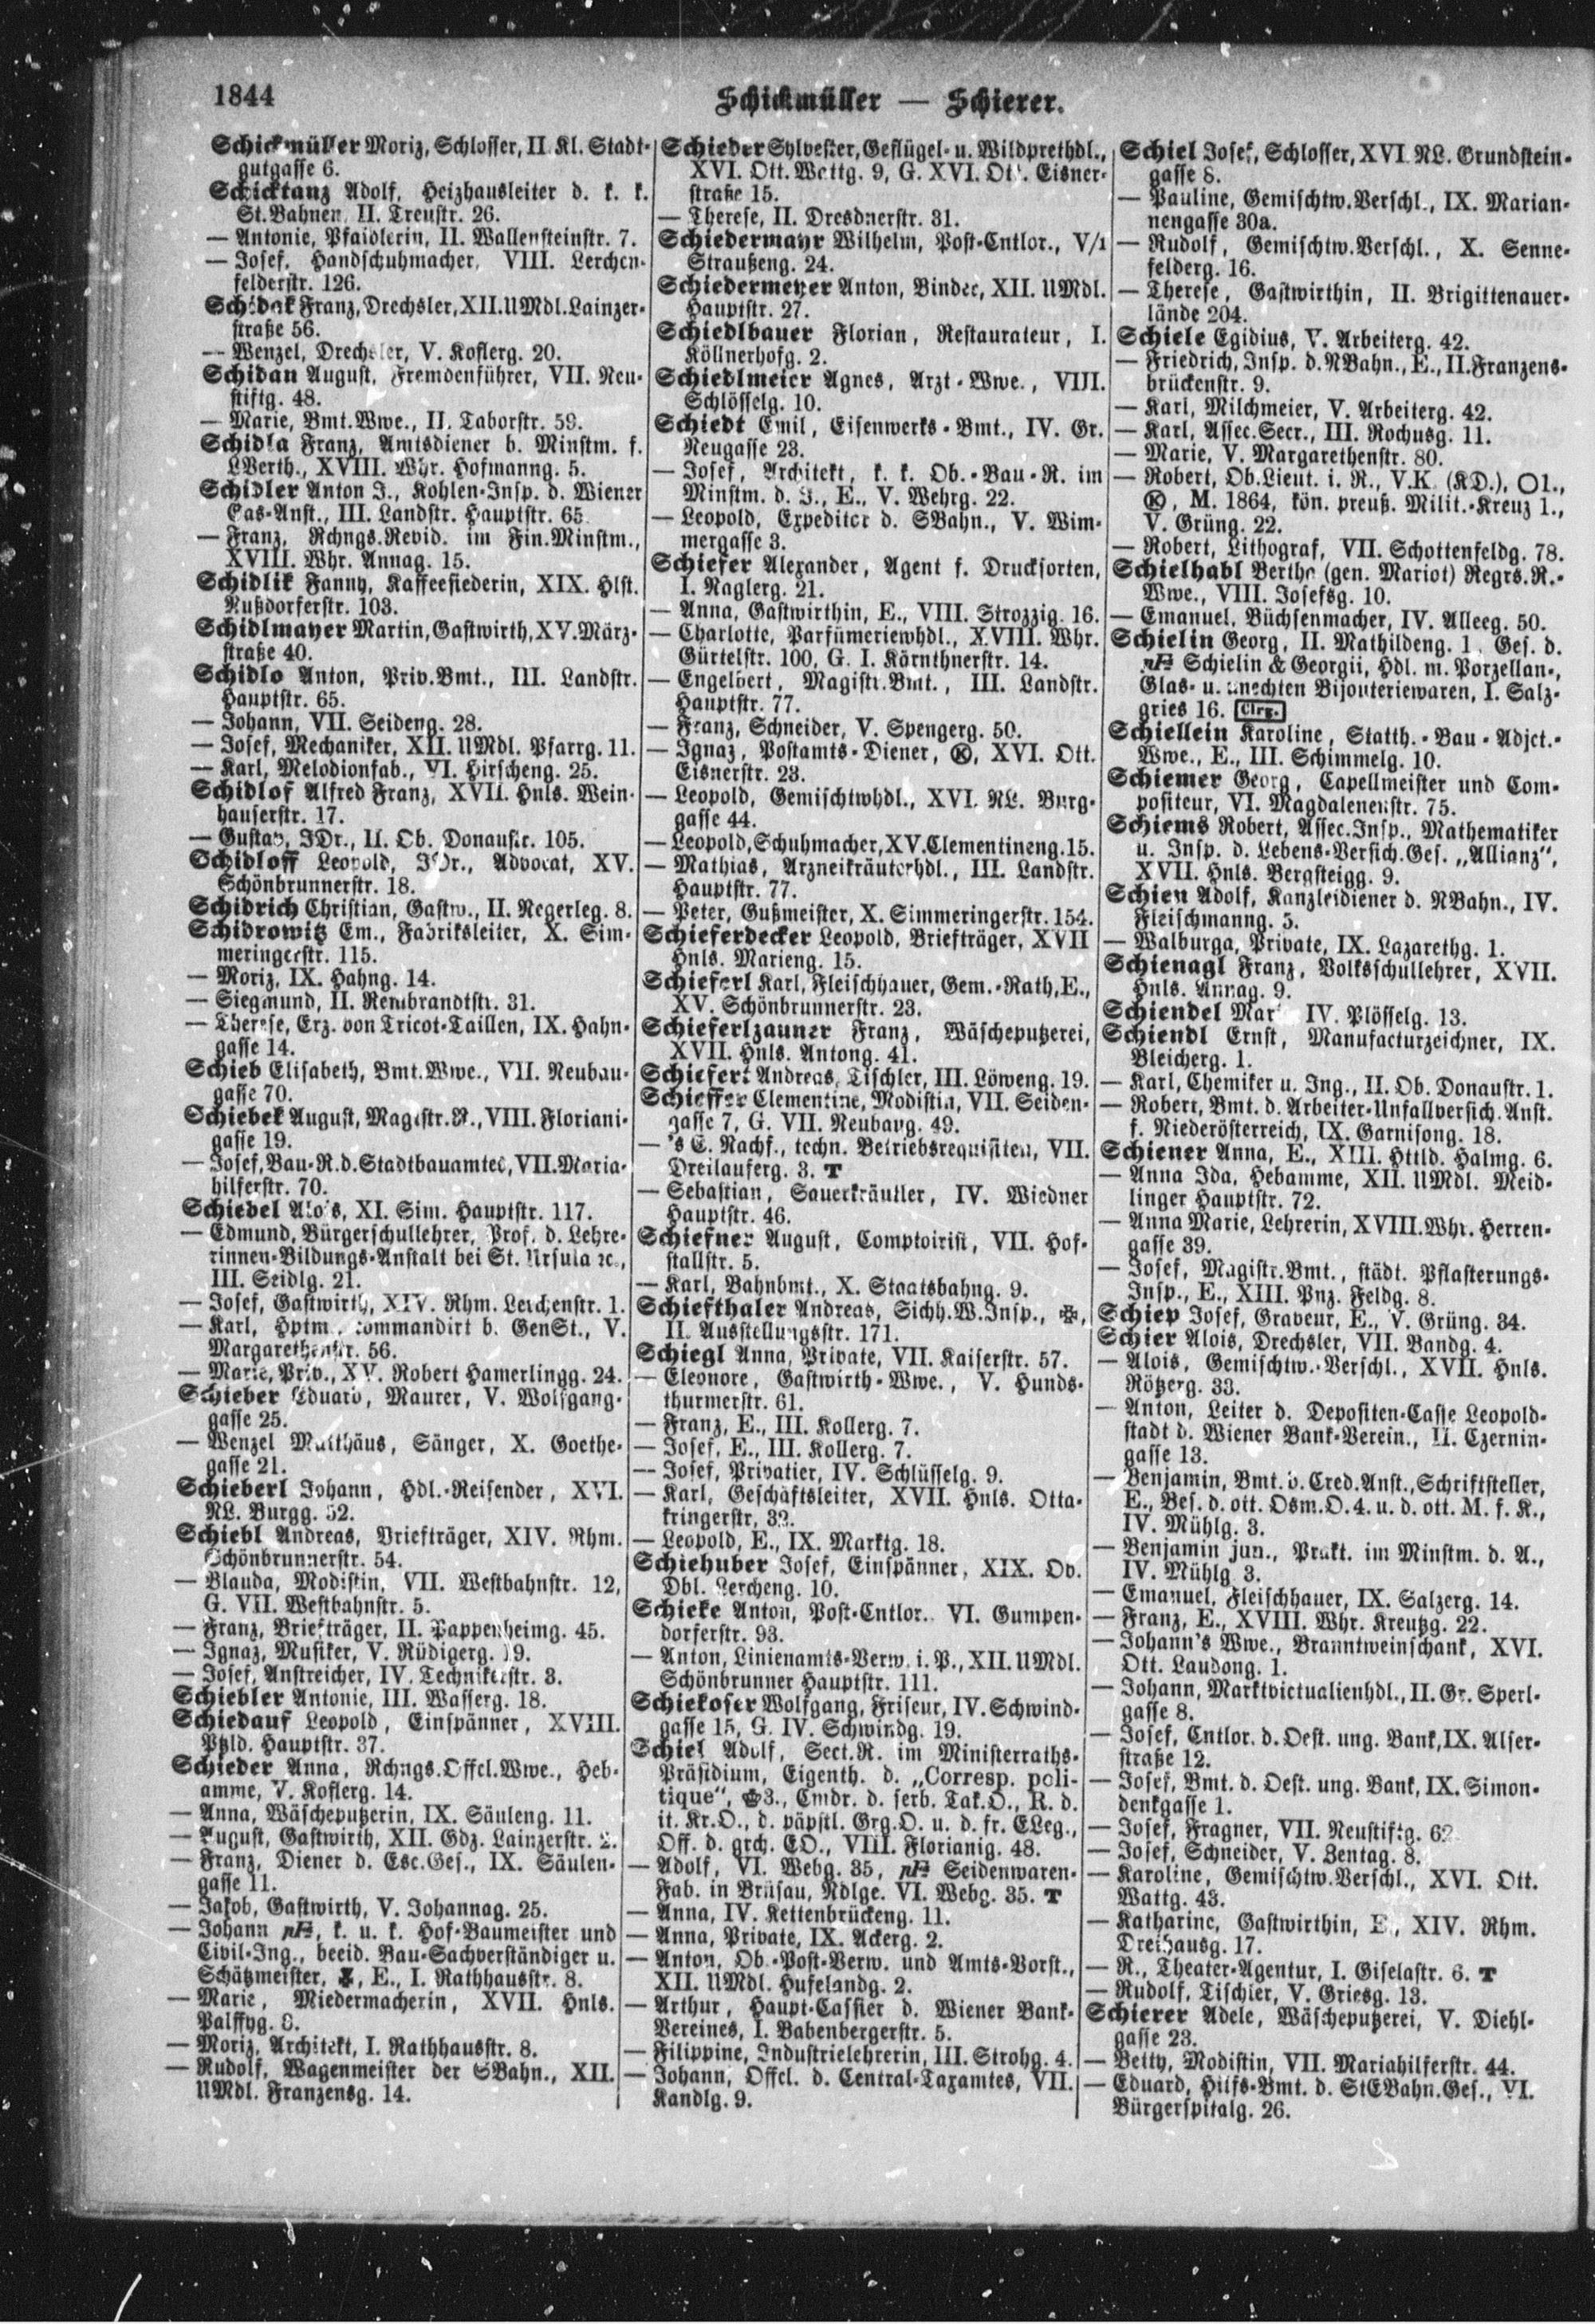 1844
Schickmüller — Schierer.
Schickmüller Moriz, Schlosser, II. Kl. Stadt-
gutgasse 6.
Schicktanz Adolf, Heizhausleiter d. k. k.
St.Bahnen, II. Treustr. 26.
— Antonie, Pfaidlerin, II. Wallensteinstr. 7.
— Josef, Handschuhmacher, VIII. Lerchen-
felderstr. 126.
Schidak Franz, Drechsler, XII.UMdl.Lainzer-
straße 56.
— Wenzel, Drechsler, V. Koflerg. 20.
Schidan August, Fremdenführer, VII. Neu-
stiftg. 48.
— Marie, Bmt.Wwe., II. Taborstr. 59.
Schidla Franz, Amtsdiener b. Minstm. f.
LVerth., XVIII. Whr. Hofmanng. 5.
Schidler Anton J., Kohlen-Insp. d. Wiener
Gas-Anst., III. Landstr. Hauptstr. 65.
— Franz, Rchngs.Revid. im Fin.Minstm.,
XVIII. Whr. Annag. 15.
Schidlik Fanny, Kaffeesiederin, XIX. Hlst.
Nußdorferstr. 103.
Schidlmayer Martin, Gastwirth, XV. März-
straße 40.
Schidlo Anton, Priv.Bmt., III. Landstr.
Hauptstr. 65.
— Johann, VII. Seideng. 28.
— Josef, Mechaniker, XII. UMdl. Pfarrg. 11.
— Karl, Melodionfab., VI. Hirscheng. 25.
Schidlof Alfred Franz, XVII. Hnls. Wein-
hauserstr. 17.
— Gustav, JDr., II. Ob. Donaustr. 105.
Schidloff Leopold, JDr., Advocat, XV.
Schönbrunnerstr. 18.
Schidrich Christian, Gastw., II. Negerleg. 8.
Schidrowitz Em., Fabriksleiter, X. Sim-
meringerstr. 115.
— Moriz, IX. Hahng. 14.
— Siegmund, II. Rembrandtstr. 31.
— Therese, Erz. von Tricot-Taillen, IX. Hahn-
gasse 14.
Schieb Elisabeth, Bmt.Wwe., VII. Neubau-
gasse 70.
Schiebek August, Magistr.R., VIII. Floriani-
gasse 19.
— Josef, Bau-R. d. Stadtbauamtes, VII. Maria-
hilferstr. 70.
Schiebel Alois, XI. Sim. Hauptstr. 117.
— Edmund, Bürgerschullehrer, Prof. d. Lehre-
rinnen-Bildungs-Anstalt bei St. Ursula ꝛc.,
III. Seidlg. 21.
— Josef, Gastwirth, XIV. Rhm. Lerchenstr. 1.
— Karl, Hptm., commandirt b. GenSt., V.
Margarethenstr. 56.
— Marie, Priv., XV. Robert Hamerlingg. 24.
Schieber Eduard, Maurer, V. Wolfgang-
gasse 25.
— Wenzel Matthäus, Sänger, X. Goethe-
gasse 21.
Schieberl Johann, Hdl.-Reisender, XVI.
NL. Burgg. 52.
Schiebl Andreas, Briefträger, XIV. Rhm.
Schönbrunnerstr. 54.
— Blanda, Modistin, VII. Westbahnstr. 12,
G. VII. Westbahnstr. 5.
— Franz, Briefträger, II. Pappenheimg. 45.
— Ignaz, Musiker, V. Rüdigerg. 19.
— Josef, Anstreicher, IV. Technikerstr. 3.
Schiebler Antonie, III. Wasserg. 18.
Schiedauf Leopold, Einspänner, XVIII.
Ptzld. Hauptstr. 37.
Schieder Anna, Rchngs.Offcl.Wwe., Heb-
amme, V. Koflerg. 14.
— Anna, Wäscheputzerin, IX. Säuleng. 11.
— August, Gastwirth, XII. Gdz. Lainzerstr. 2.
— Franz, Diener d. Esc.Ges., IX. Säulen-
gasse 11.
— Jakob, Gastwirth, V. Johannag. 25.
— Johann, k. u. k. Hof-Baumeister und
Civil-Ing., beeid. Bau-Sachverständiger u.
Schätzmeister, E., I. Rathhausstr. 8.
— Marie, Miedermacherin, XVII. Hnls.
Palffyg. 8.
— Moriz, Architekt, I. Rathhausstr. 8.
— Rudolf, Wagenmeister der SBahn., XII.
UMdl. Franzensg. 14.
Schieder Sylvester, Geflügel- u. Wildprethdl.,
XVI. Ott. Wattg. 9, G. XVI. Ott. Eisner-
straße 15.
— Therese, II. Dresdnerstr. 31.
Schiedermayr Wilhelm, Post-Cntlor., V/1
Straußeng. 24.
Schiedermeyer Anton, Binder, XII. UMdl.
Hauptstr. 27.
Schiedlbauer Florian, Restaurateur, I.
Köllnerhofg. 2.
Schiedlmeier Agnes, Arzt-Wwe., VIII.
Schlösselg. 10.
Schiedt Emil, Eisenwerks-Bmt., IV. Gr.
Neugasse 23.
— Josef, Architekt, k. k. Ob.-Bau-R. im
Minstm. d. J., E., V. Wehrg. 22.
— Leopold, Expeditor d. SBahn., V. Wim-
mergasse 3.
Schiefer Alexander, Agent f. Drucksorten,
I. Naglerg. 21.
— Anna, Gastwirthin, E., VIII. Strozzig. 16.
— Charlotte, Parfümeriewhdl., XVIII. Whr.
Gürtelstr. 100, G. I. Kärnthnerstr. 14.
— Engelbert, Magistr.Bmt., III. Landstr.
Hauptstr. 77.
— Franz, Schneider, V. Spengerg. 50.
— Ignaz, Postamts-Diener, Ⓚ, XVI. Ott.
Eisnerstr. 23.
— Leopold, Gemischtwhdl., XVI. NL. Burg-
gasse 44.
— Leopold, Schuhmacher, XV. Clementineng. 15.
— Mathias, Arzneikräuterhdl., III. Landstr.
Hauptstr. 77.
— Peter, Gußmeister, X. Simmeringerstr. 154.
Schieferdecker Leopold, Briefträger, XVII
Hnls. Marieng. 15.
Schieferl Karl, Fleischhauer, Gem.-Rath, E.,
XV. Schönbrunnerstr. 23.
Schieferlzauner Franz, Wäscheputzerei,
XVII. Hnls. Antong. 41.
Schiefert Andreas, Tischler, III. Löweng. 19.
Schieffer Clementine, Modistin, VII. Seiden-
gasse 7, G. VII. Neubaug. 49.
— 's E. Nachf., techn. Betriebsrequisiten, VII.
Dreilauferg. 3. T
— Sebastian, Sauerkräutler, IV. Wiedner
Hauptstr. 46.
Schiefner August, Comptoirist, VII. Hof-
stallstr. 5.
— Karl, Bahnbmt., X. Staatsbahng. 9.
Schiefthaler Andreas, Sichh.W.Insp., ✠,
II. Ausstellungsstr. 171.
Schiegl Anna, Private, VII. Kaiserstr. 57.
— Eleonore, Gastwirth-Wwe., V. Hunds-
thurmerstr. 61.
— Franz, E., III. Kollerg. 7.
— Josef, E., III. Kollerg. 7.
— Josef, Privatier, IV. Schlüsselg. 9.
— Karl, Geschäftsleiter, XVII. Hnls. Otta-
kringerstr, 32.
— Leopold, E., IX. Marktg. 18.
Schiehuber Josef, Einspänner, XIX. Ob.
Dbl. Lercheng. 10.
Schieke Anton, Post-Cntlor. VI. Gumpen-
dorferstr. 93.
— Anton, Linienamts-Verw. i. P., XII. UMdl.
Schönbrunner Hauptstr. 111.
Schiekofer Wolfgang, Friseur, IV. Schwind-
gasse 15, G. IV. Schwindg. 19.
Schiel Adolf, Sect.R. im Ministerraths-
Präsidium, Eigenth. d. „Corresp. poli-
tique", 3., Cmdr. d. serb. Tak.O., R. d.
it. Kr.O., d. päpstl. Grg.O. u. d. fr. ELeg.,
Off. d. grch. EO., VIII. Florianig. 48.
— Adolf, VI. Webg. 35, Seidenwaren-
Fab. in Brüsau, Ndlge. VI. Webg. 35. T
— Anna, IV. Kettenbrückeng. 11.
— Anna, Private, IX. Ackerg. 2.
— Anton, Ob.-Post-Verw. und Amts-Vorst.,
XII. UMdl. Hufelandg. 2.
— Arthur, Haupt-Cassier d. Wiener Bank-
Vereines, I. Babenbergerstr. 5.
— Filippine, Industrielehrerin, III. Strohg. 4.
— Johann, Offcl. d. Central-Taxamtes, VII.
Kandlg. 9.
Schiel Josef, Schlosser, XVI. NL. Grundstein-
gasse 8.
— Pauline, Gemischtw.Verschl., IX. Marian-
nengasse 30a.
— Rudolf, Gemischtw.Verschl., X. Senne-
felderg. 16.
— Therese, Gastwirthin, II. Brigittenauer-
lände 204.
Schiele Egidius, V. Arbeiterg. 42.
— Friedrich, Insp. d. NBahn., E., II. Franzens-
brückenstr. 9.
— Karl, Milchmeier, V. Arbeiterg. 42.
— Karl, Assec.Secr., III. Rochusg. 11.
— Marie, V. Margarethenstr. 80.
— Robert, Ob.Lieut. i. R., V.K. (KD.), O1.,
Ⓚ, M. 1864, kön. preuß. Milit.-Kreuz 1.,
V. Grüng. 22.
— Robert, Lithograf, VII. Schottenfeldg. 78.
Schielhabl Bertha (gen. Mariot) Regrs.R.-
Wwe., VIII. Josefsg. 10.
— Emanuel, Büchsenmacher, IV. Alleeg. 50.
Schielin Georg, II. Mathildeng. 1, Ges. d.
Schielin & Georgii, Hdl. m. Porzellan-,
Glas- u. unechten Bijouteriewaren, I. Salz-
gries 16. Clrg.
Schiellein Karoline, Statth.-Bau-Adjct.-
Wwe., E., III. Schimmelg. 10.
Schiemer Georg, Capellmeister und Com-
positeur, VI. Magdalenenstr. 75.
Schiems Robert, Assec.Insp., Mathematiker
u. Insp. d. Lebens-Versich.Ges. „Allianz",
XVII. Hnls. Bergsteigg. 9.
Schien Adolf, Kanzleidiener d. NBahn., IV.
Fleischmanng. 5.
— Walburga, Private, IX. Lazarethg. 1.
Schienagl Franz, Volksschullehrer, XVII.
Hnls. Annag. 9.
Schiendel IV. Plösselg. 13.
Schiendl Ernst, Manufacturzeichner, IX.
Bleicherg. 1.
— Karl, Chemiker u. Ing., II. Ob. Donaustr. 1.
— Robert, Bmt. d. Arbeiter-Unfallversich.Anst.
f. Niederösterreich, IX. Garnisong. 18.
Schiener Anna, E., XIII. Httld. Halmg. 6.
— Anna Ida, Hebamme, XII. UMdl. Meid-
linger Hauptstr. 72.
— Anna Marie, Lehrerin, XVIII. Whr. Herren-
gasse 39.
— Josef, Magistr.Bmt., städt. Pflasterungs-
Insp., E., XIII. Pnz. Feldg. 8.
Schiep Josef, Graveur, E., V. Grüng. 34.
Schier Alois, Drechsler, VII. Bandg. 4.
— Alois, Gemischtw.-Verschl., XVII. Hnls.
Rötzerg. 33.
— Anton, Leiter d. Depositen-Casse Leopold-
stadt d. Wiener Bank-Verein., II. Czernin-
gasse 13.
— Benjamin, Bmt. d. Cred.Anst., Schriftsteller,
E., Bes. d. ott. Osm.O. 4. u. d. ott. M. f. K.,
IV. Mühlg. 3.
— Benjamin jun., Prakt. im Minstm. d. A.,
IV. Mühlg. 3.
— Emanuel, Fleischhauer, IX. Salzerg. 14.
— Franz, E., XVIII. Whr. Kreutzg. 22.
— Johann's Wwe., Branntweinschank, XVI.
Ott. Laudong. 1.
— Johann, Marktvictualienhdl., II. Gr. Sperl-
gasse 8.
— Josef, Cntlor. d. Oest. ung. Bank, IX. Alser-
straße 12.
— Josef, Bmt. d. Oest. ung. Bank, IX. Simon-
denkgasse 1.
— Josef, Fragner, VII. Neustiftg. 62
— Josef, Schneider, V. Zentag. 8.
— Karoline, Gemischtw.Verschl., XVI. Ott.
Wattg. 43.
— Katharine, Gastwirthin, E., XIV. Rhm.
Dreihausg. 17.
— R., Theater-Agentur, I. Giselastr. 6. T
— Rudolf, Tischler, V. Griesg. 13.
Schierer Adele, Wäscheputzerei, V. Diehl-
gasse 23.
— Betty, Modistin, VII. Mariahilferstr. 44.
— Eduard, Hilfs-Bmt. d. StEBahn.Ges., VI.
Bürgerspitalg. 26.